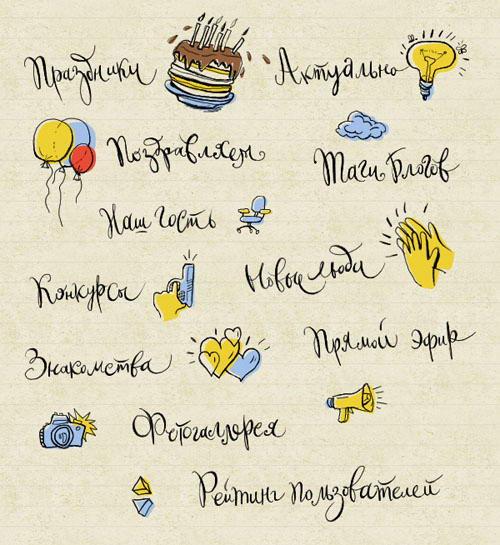 Праздники
Актуально
Поздравляем
Таги Блогов
Наш Гость
Новые люди
Конкурсы
Прямой Эфир
Знакомства
Фотогаллерея
Рейтинг Пользователей